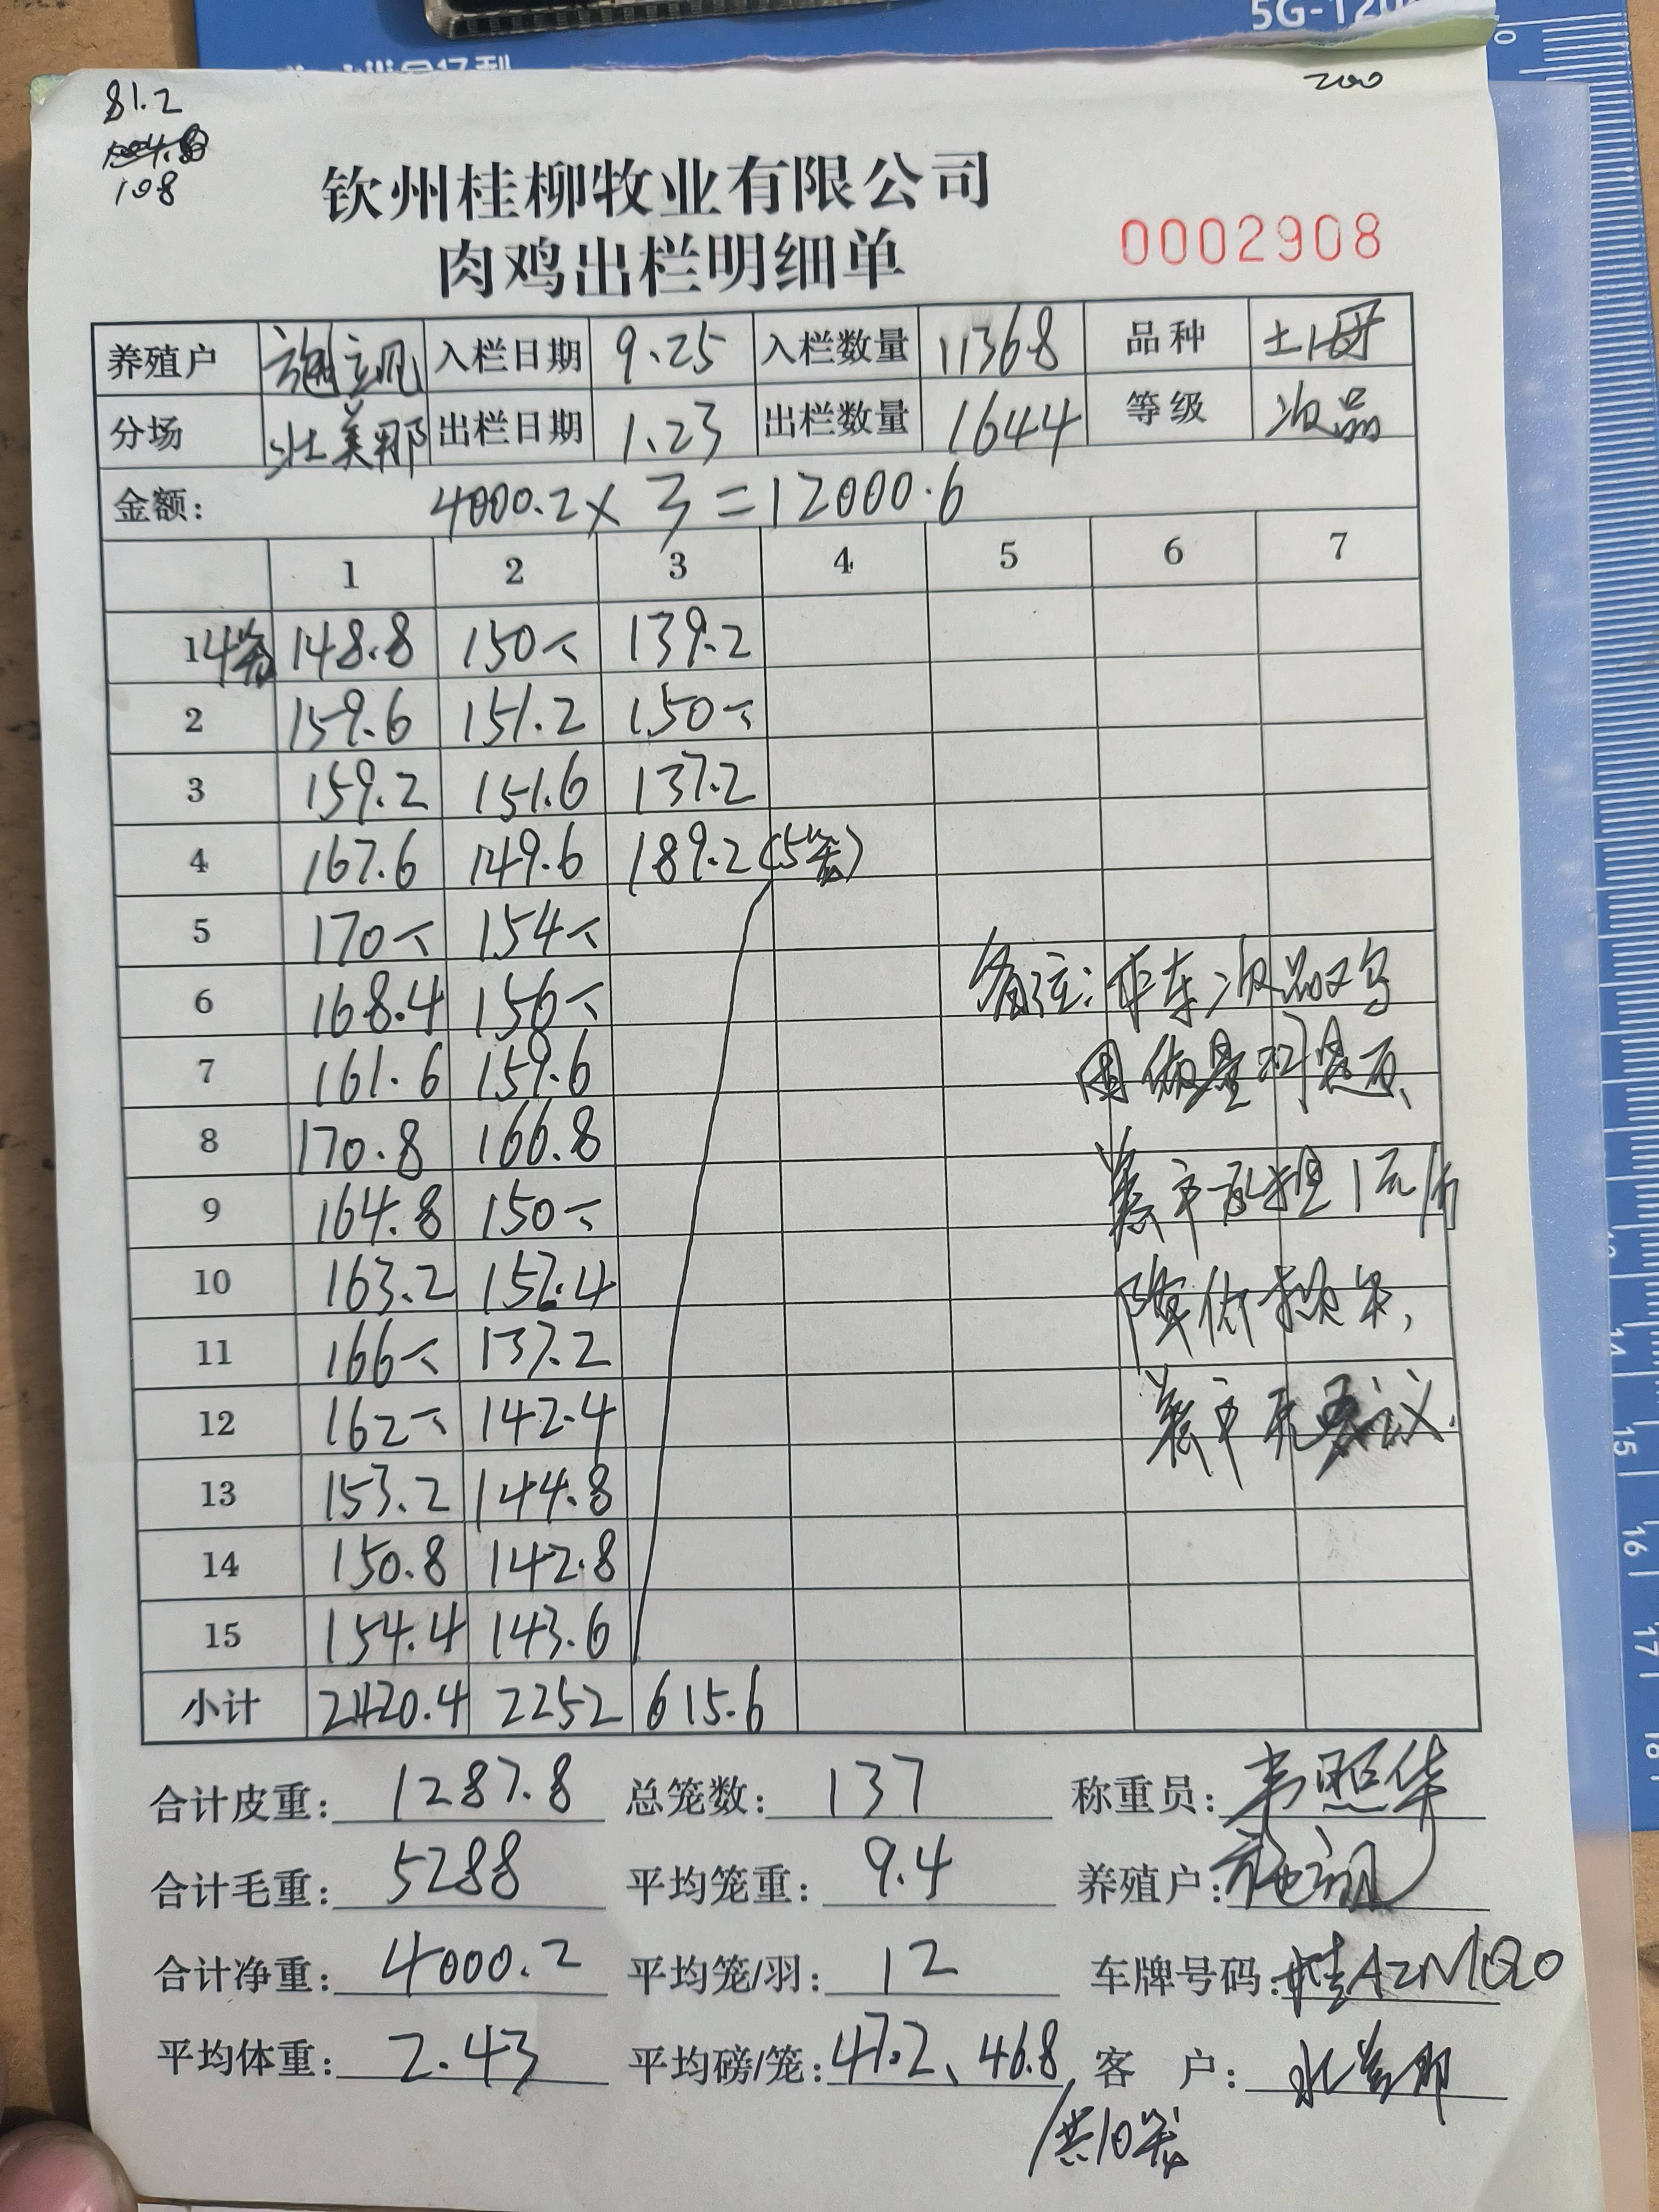 5G-120
81.2
200
108
钦州桂柳牧业有限公司
肉鸡出栏明细单
0002908
养殖户 施立凡 入栏日期 9.25 入栏数量 11368 品种 土1母
分场 壮美那 出栏日期 1.23 出栏数量 1644 等级 次品
金额: 4000.2×3=12000.6
1 2 3 4 5 6 7
1 4笼 148.8 150个 139.2
2 159.6 151.2 150个
3 159.2 151.6 137.2
4 167.6 149.6 189.2(5笼)
5 170个 154个
6 168.4 156个
备注:本车次品因鸟
7 161.6 159.6
问题,
8 170.8 166.8
养户承担1元/斤
9 164.8 150个
10 163.2 152.4
降价损失,
11 166个 137.2
12 162个 142.4
养户无异议.
13 153.2 144.8
14 150.8 142.8
15 154.4 143.6
小计 2420.4 2252 615.6
合计皮重: 1287.8 总笼数: 137 称重员: 韦照华
合计毛重: 5288 平均笼重: 9.4 养殖户: 施立凡
合计净重: 4000.2 平均笼/羽: 12 车牌号码: 桂AZM1Q0
平均体重: 2.43 平均磅/笼: 47.2、46.8 客 户:
/共10笼
14
15
16
17
18